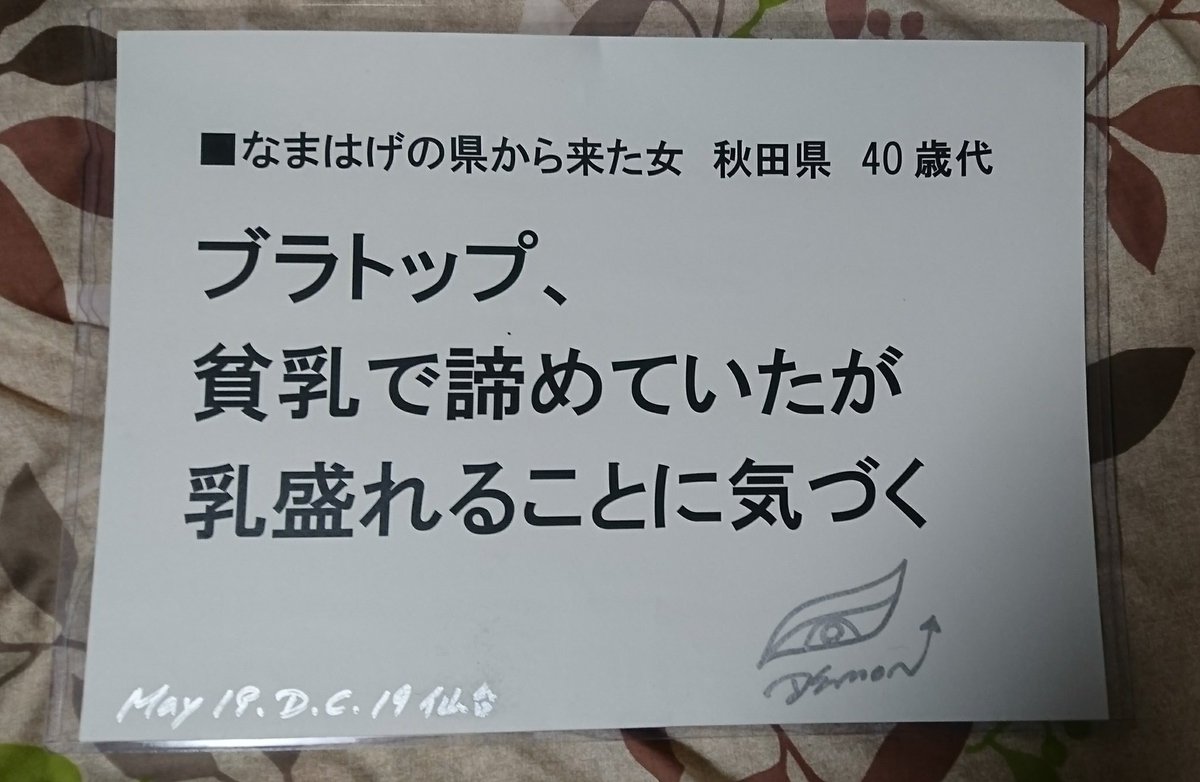 ■なまはげの県から来た女　秋田県　40歳代
ブラトップ、
貧乳で諦めていたが
乳盛れることに気づく
DEMON
May 19. D.C.19 仙台